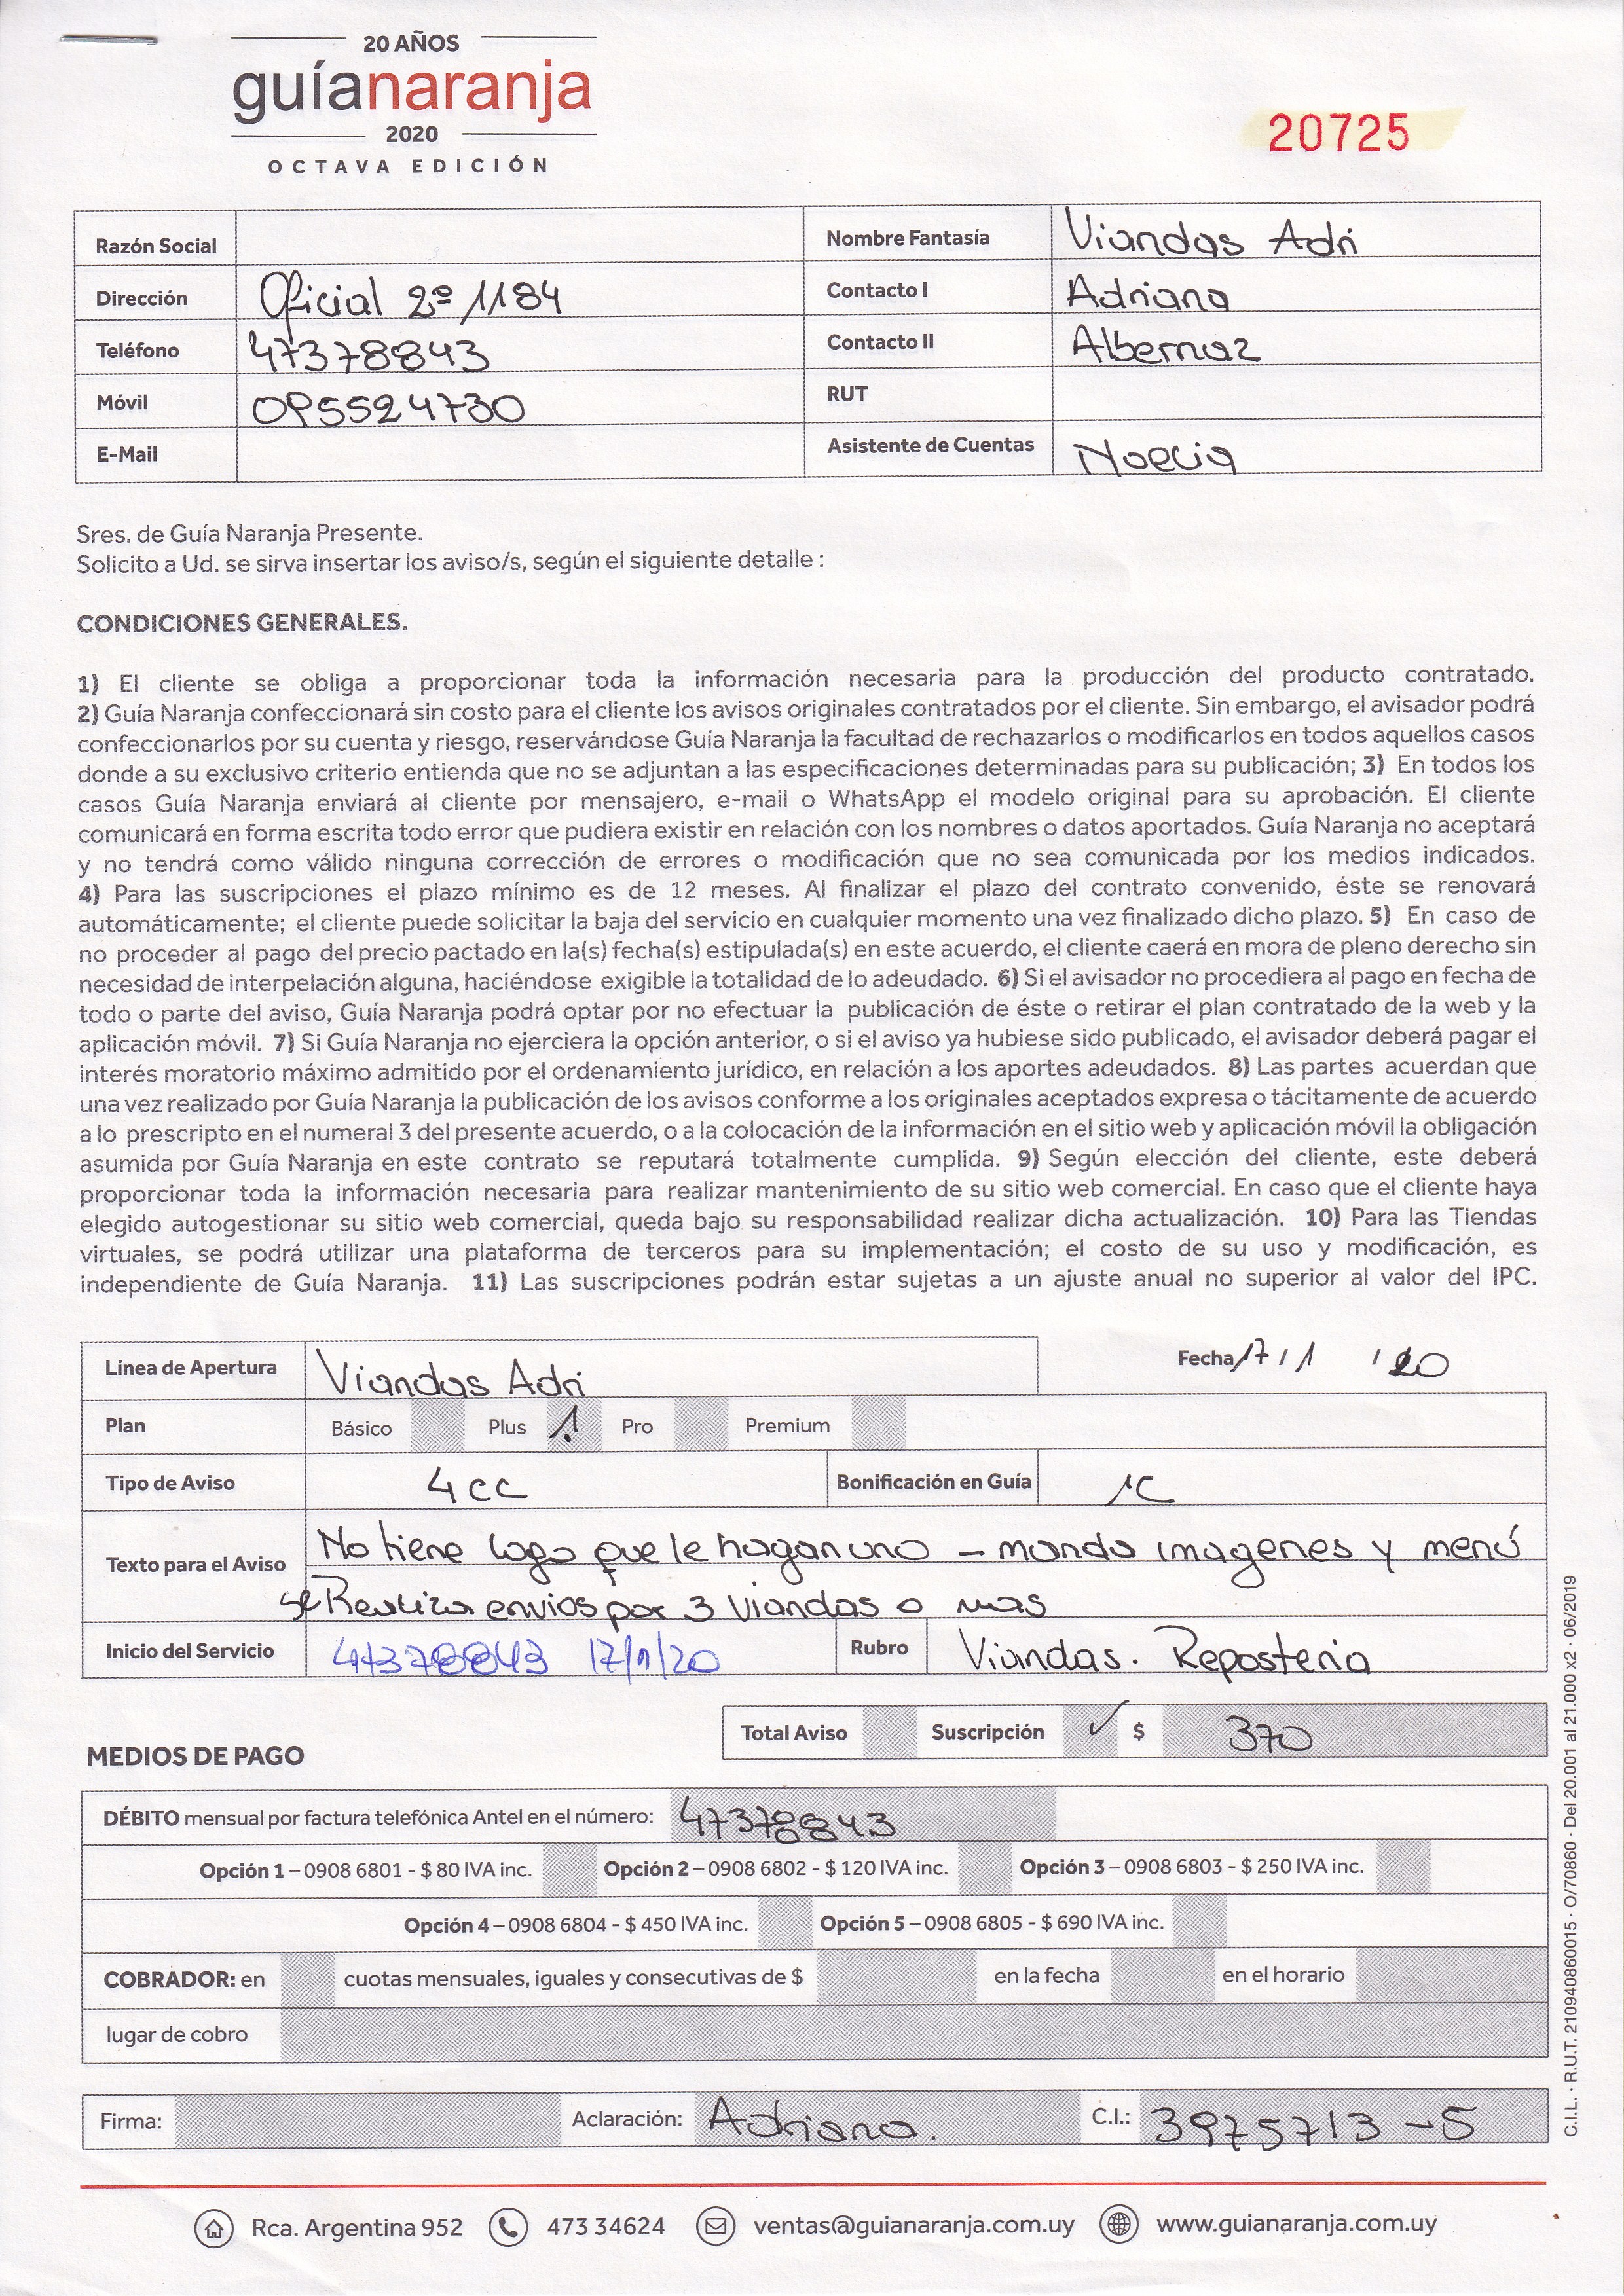 20 AÑOS
guíanaranja
2020
OCTAVA EDICIÓN
20725
Razón Social
Nombre Fantasía Viandas Adri
Dirección Oficial 2º 1184
Contacto I Adriana
Teléfono 47378843
Contacto II Albernaz
Móvil 095524730
RUT
E-Mail
Asistente de Cuentas Noelia
Sres. de Guía Naranja Presente.
Solicito a Ud. se sirva insertar los aviso/s, según el siguiente detalle :
CONDICIONES GENERALES.
1) El cliente se obliga a proporcionar toda la información necesaria para la producción del producto contratado.
2) Guía Naranja confeccionará sin costo para el cliente los avisos originales contratados por el cliente. Sin embargo, el avisador podrá
confeccionarlos por su cuenta y riesgo, reservándose Guía Naranja la facultad de rechazarlos o modificarlos en todos aquellos casos
donde a su exclusivo criterio entienda que no se adjuntan a las especificaciones determinadas para su publicación; 3) En todos los
casos Guía Naranja enviará al cliente por mensajero, e-mail o WhatsApp el modelo original para su aprobación. El cliente
comunicará en forma escrita todo error que pudiera existir en relación con los nombres o datos aportados. Guía Naranja no aceptará
y no tendrá como válido ninguna corrección de errores o modificación que no sea comunicada por los medios indicados.
4) Para las suscripciones el plazo mínimo es de 12 meses. Al finalizar el plazo del contrato convenido, éste se renovará
automáticamente; el cliente puede solicitar la baja del servicio en cualquier momento una vez finalizado dicho plazo. 5) En caso de
no proceder al pago del precio pactado en la(s) fecha(s) estipulada(s) en este acuerdo, el cliente caerá en mora de pleno derecho sin
necesidad de interpelación alguna, haciéndose exigible la totalidad de lo adeudado. 6) Si el avisador no procediera al pago en fecha de
todo o parte del aviso, Guía Naranja podrá optar por no efectuar la publicación de éste o retirar el plan contratado de la web y la
aplicación móvil. 7) Si Guía Naranja no ejerciera la opción anterior, o si el aviso ya hubiese sido publicado, el avisador deberá pagar el
interés moratorio máximo admitido por el ordenamiento jurídico, en relación a los aportes adeudados. 8) Las partes acuerdan que
una vez realizado por Guía Naranja la publicación de los avisos conforme a los originales aceptados expresa o tácitamente de acuerdo
a lo prescripto en el numeral 3 del presente acuerdo, o a la colocación de la información en el sitio web y aplicación móvil la obligación
asumida por Guía Naranja en este contrato se reputará totalmente cumplida. 9) Según elección del cliente, este deberá
proporcionar toda la información necesaria para realizar mantenimiento de su sitio web comercial. En caso que el cliente haya
elegido autogestionar su sitio web comercial, queda bajo su responsabilidad realizar dicha actualización. 10) Para las Tiendas
virtuales, se podrá utilizar una plataforma de terceros para su implementación; el costo de su uso y modificación, es
independiente de Guía Naranja. 11) Las suscripciones podrán estar sujetas a un ajuste anual no superior al valor del IPC.
Línea de Apertura Viandas Adri
Fecha 17 / 1 / 20
Plan Básico Plus 1. Pro Premium
Tipo de Aviso 4cc Bonificación en Guía 1C
Texto para el Aviso No tiene logo que le hagan uno - mando imagenes y menú
se Realiza envios por 3 Viandas o mas
Inicio del Servicio 47378843 17/1/20 Rubro Viandas. Reposteria
Total Aviso Suscripción ✓ $ 370
MEDIOS DE PAGO
DÉBITO mensual por factura telefónica Antel en el número: 47378843
Opción 1 – 0908 6801 - $ 80 IVA inc. Opción 2 – 0908 6802 - $ 120 IVA inc. Opción 3 – 0908 6803 - $ 250 IVA inc.
Opción 4 – 0908 6804 - $ 450 IVA inc. Opción 5 – 0908 6805 - $ 690 IVA inc.
COBRADOR: en cuotas mensuales, iguales y consecutivas de $ en la fecha en el horario
lugar de cobro
Firma: Aclaración: Adriana. C.I.: 3975713-5
Rca. Argentina 952 473 34624 ventas@guianaranja.com.uy www.guianaranja.com.uy
C.I.L. · R.U.T. 210940860015 · O/70860 · Del 20.001 al 21.000 x2 · 06/2019